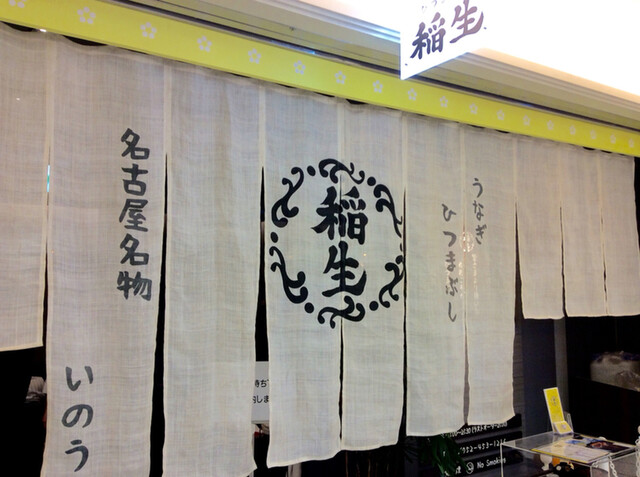 稲生
名古屋名物
いのう
稲生
うなぎ
ひつまぶし
No Smoking